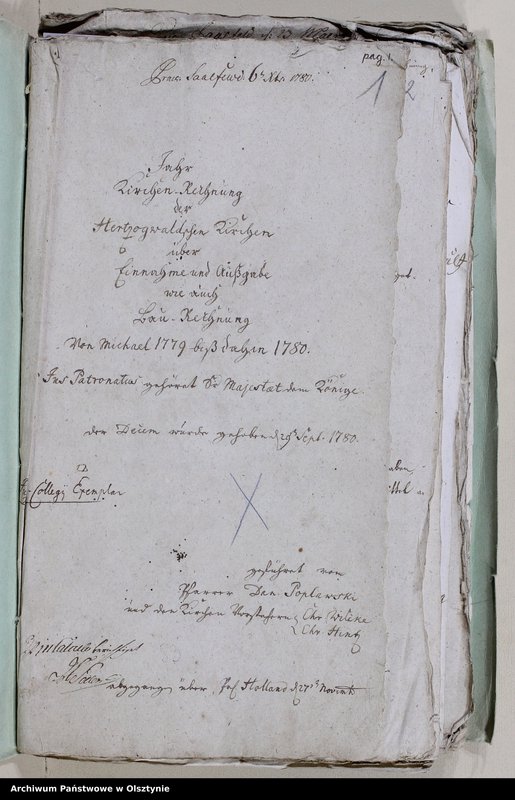 pag. 1.
Praes. Saalfeld 6t Xbr. 1780.
1 2
Jahr
Kirchen-Rechnung
der
Hertzogwaldschen Kirchen
über
Einnahme und Außgabe
wie auch
Bau-Rechnung
Von Michael 1779 biß dahin 1780.
Jus Patronatus gehöret Sr Majestaet dem Könige.
der Decem wurde gehoben d 29t Sept. 1780.
Collegij Exemplar
geführet von
Pfarrer Dan Poplawski
und den Kirchen Vorstehern Chr Wilcke
Chr. Hintz
abgegangen über Pr. Holland d 27t Novemb
Archiwum Państwowe w Olsztynie